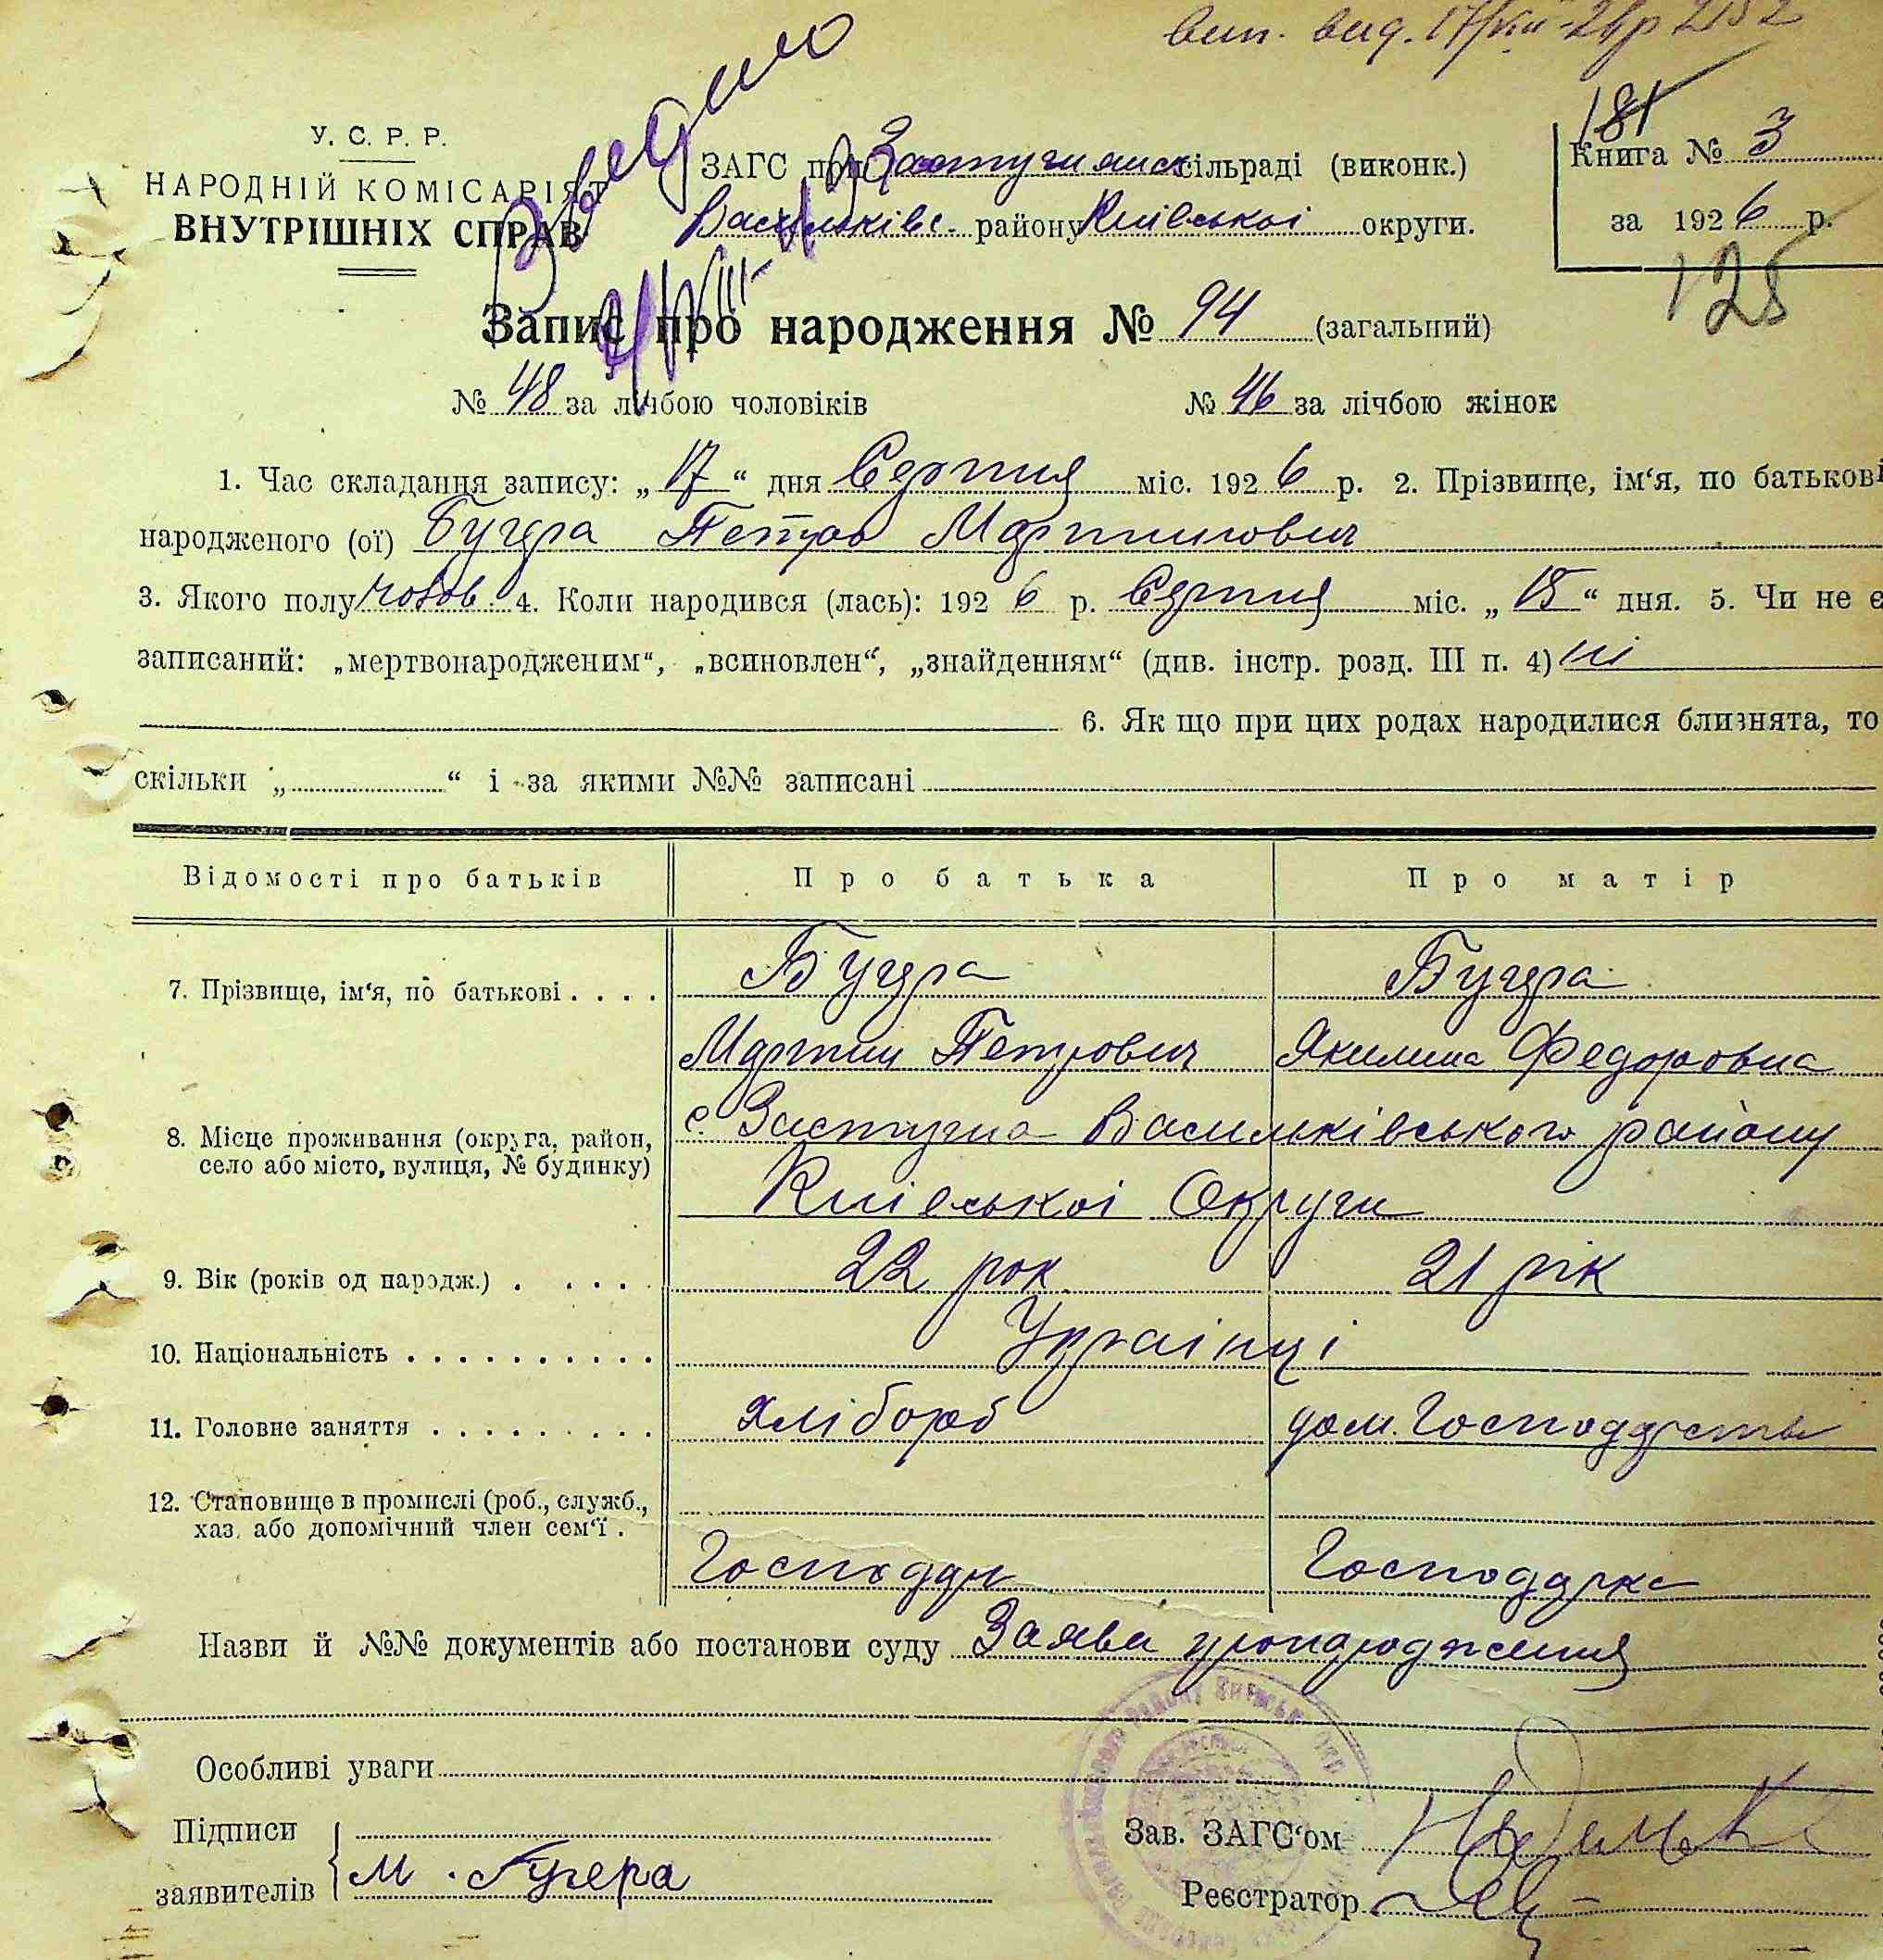 вип. вид. 17/VIII-26р 2152
Видано
У. С. Р. Р.
НАРОДНІЙ КОМІСАРІЯТ
ВНУТРІШНІХ СПРАВ
ЗАГС при Застугнянск сільраді (виконк.)
Васильківс. району Київської округи.
181
Книга № 3
за 1926 р.
125
Запис про народження № 94 (загальний)
№ 48 за лічбою чоловіків № 46 за лічбою жінок
1. Час складання запису: „17“ дня Серпня міс. 1926 р. 2. Прізвище, ім‘я, по батькові
народженого (ої) Бугера Петро Мартинович
3. Якого полу чолов. 4. Коли народився (лась): 1926 р. Серпня міс. „15“ дня. 5. Чи не є
записаний: „мертвонародженим“, „всиновлен“, „знайденням“ (див. інстр. розд. III п. 4) ні
6. Як що при цих родах народилися близнята, то
скільки „ “ і за якими №№ записані
Відомості про батьків Про батька Про матір
7. Прізвище, ім‘я, по батькові . . . . Бугера Бугера
Мартин Петрович Якилина Федоровна
8. Місце проживання (округа, район, село або місто, вулиця, № будинку) с. Застугна Васильківського району
Київської Округи
9. Вік (років од народж.) . . . . . 22 рок 21 рік
10. Національність . . . . . . . . . . Українці
11. Головне заняття . . . . . . . . . хлібороб дом. Господарств
12. Становище в промислі (роб., служб.,
хаз. або допомічний член сем‘ї .
Господар Господарка
Назви й №№ документів або постанови суду Заява про народження
Особливі уваги
Підписи
заявителів М. Бугера
Зав. ЗАГС‘ом
Реєстратор